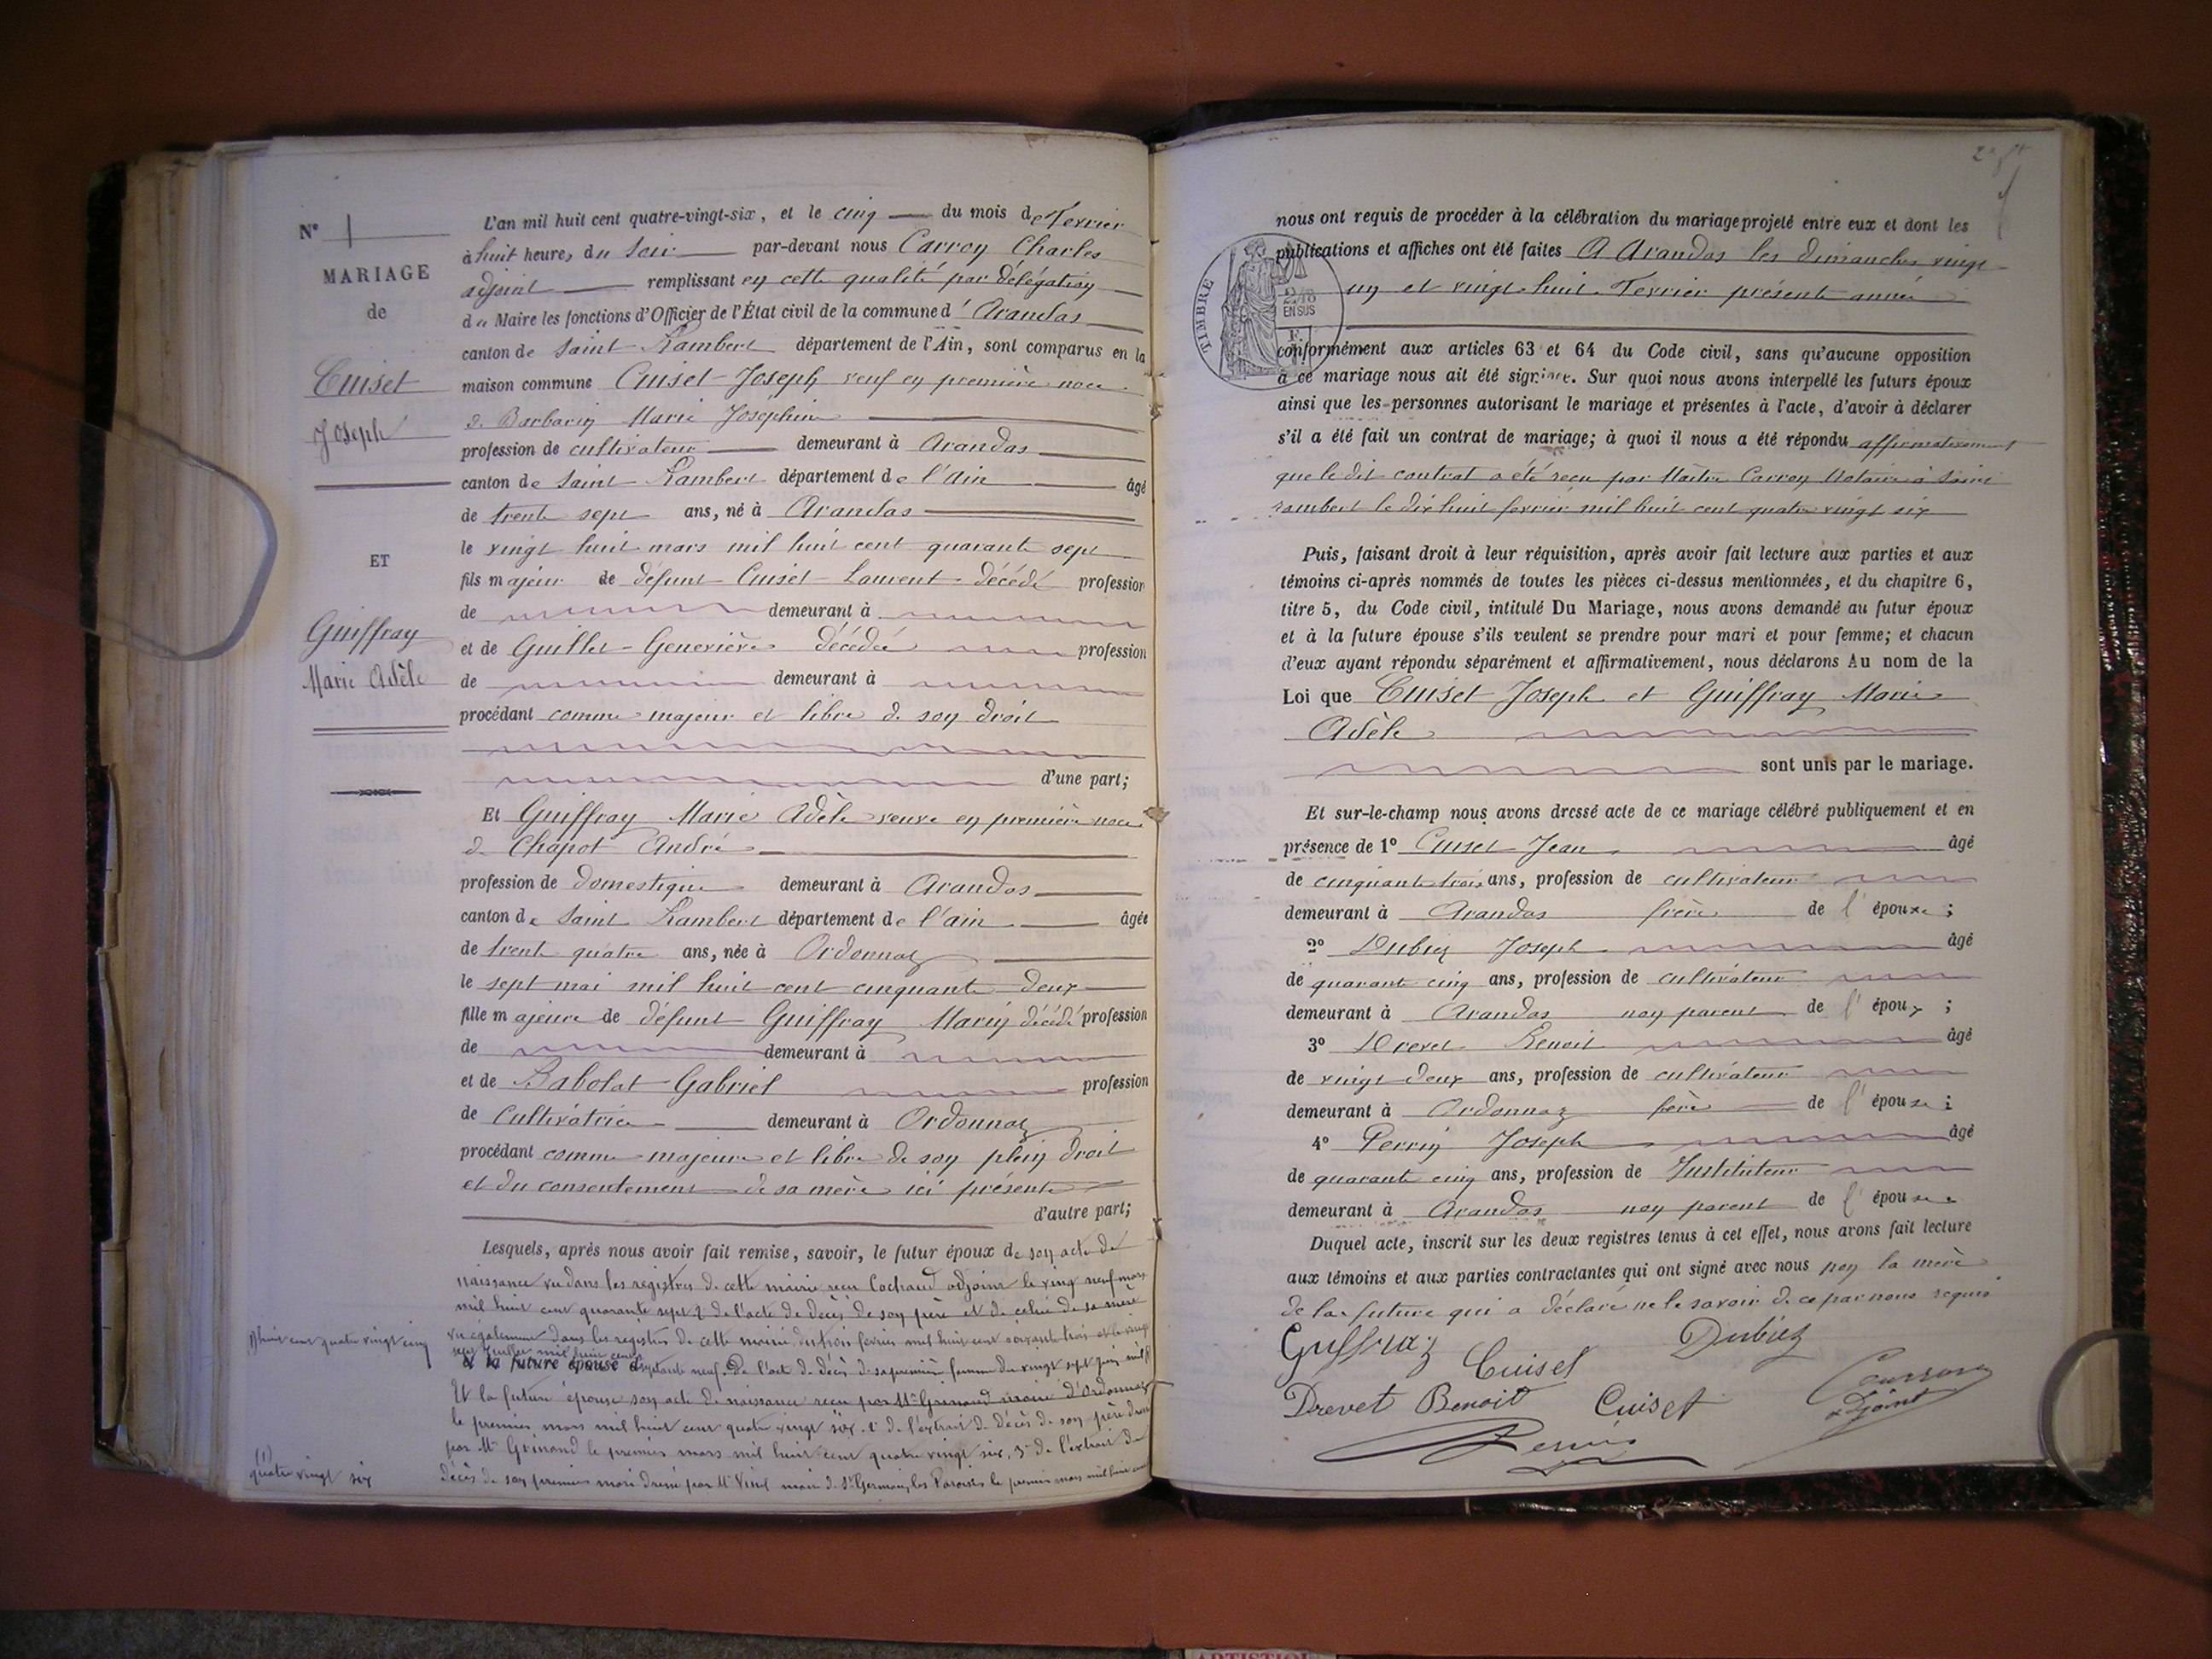 N° 1
MARIAGE
de
Cuiset
Joseph
ET
Guiffray
Marie Adèle
L'an mil huit cent quatre-vingt-six, et le cinq du mois de Fevrier
à huit heures du soir par-devant nous Carron Charles
adjoint remplissant en cette qualité par délégation
du Maire les fonctions d'Officier de l'État civil de la commune d'Arandas
canton de Saint-Rambert département de l'Ain, sont comparus en la
maison commune Cuiset Joseph veuf en première noce
de Barbarin Marie Joséphine
profession de cultivateur demeurant à Arandas
canton de Saint-Rambert département de l'Ain âgé
de trente sept ans, né à Arandas
le vingt huit mars mil huit cent quarante sept
fils majeur de défunt Cuiset Laurent décédé profession
de demeurant à
et de Guillet Geneviève décédée profession
de demeurant à
procédant comme majeur et libre de son droit
d'une part;
Et Guiffray Marie Adèle veuve en première noce
de Chapot André
profession de domestique demeurant à Arandas
canton de Saint Rambert département de l'ain âgée
de trente quatre ans, née à Ordonnaz
le sept mai mil huit cent cinquante deux
fille majeure de défunt Guiffray Marin décédé profession
de demeurant à
et de Babolat Gabriel profession
de Cultivatrice demeurant à Ordonnaz
procédant comme majeure et libre de son plein droit
et du consentement de sa mère ici présente
d'autre part;
Lesquels, après nous avoir fait remise, savoir, le futur époux de son acte de
naissance vu dans les registres de cette mairie reçu Cochaud adjoint le vingt neuf mars
mil huit cent quarante sept 2° de l'acte de décès de son père et de celui de sa mère
vu également dans les registres de cette mairie du trois fevrier mil huit cent soixante trois et le vingt
sept Juillet mil huit cent
et la future épouse d soixante neuf. De l'acte de décès de sa première femme du vingt sept juin mil
1) huit cent quatre vingt cinq
Et la future épouse son acte de naissance reçu par Mr Grinand maire d'Ordonnaz
le premier mars mil huit cent quatre vingt six. 2° de l'extrait de décès de son père dressé
par Mr Grinand le premier mars mil huit cent quatre vingt six, 3° de l'extrait de
décès de son premier mari dressé par Mr maire de St Germain les Paroisses le premier mars mil huit cent
(1)
quatre vingt six
nous ont requis de procéder à la célébration du mariage projeté entre eux et dont les
publications et affiches ont été faites A Arandas les dimanches vingt
un et vingt-huit Fevrier présente année
TIMBRE
2/10
EN SUS
F
conformément aux articles 63 et 64 du Code civil, sans qu'aucune opposition
à ce mariage nous ait été signifiée. Sur quoi nous avons interpellé les futurs époux
ainsi que les personnes autorisant le mariage et présentes à l'acte, d'avoir à déclarer
s'il a été fait un contrat de mariage; à quoi il nous a été répondu affirmativement
que le dit contrat a été reçu par Maître Carron Notaire à Saint
rambert le dix huit fevrier mil huit cent quatre vingt six
Puis, faisant droit à leur réquisition, après avoir fait lecture aux parties et aux
témoins ci-après nommés de toutes les pièces ci-dessus mentionnées, et du chapitre 6,
titre 5, du Code civil, intitulé Du Mariage, nous avons demandé au futur époux
et à la future épouse s'ils veulent se prendre pour mari et pour femme; et chacun
d'eux ayant répondu séparément et affirmativement, nous déclarons Au nom de la
Loi que Cuiset Joseph et Guiffray Marie
Adèle
sont unis par le mariage.
Et sur-le-champ nous avons dressé acte de ce mariage célébré publiquement et en
présence de 1° Cuiset Jean âgé
de cinquante trois ans, profession de cultivateur
demeurant à Arandas frère de l'époux;
2° Dubiez Joseph âgé
de quarante cinq ans, profession de cultivateur
demeurant à Arandas non parent de l'époux;
3° Drevet Benoit âgé
de vingt deux ans, profession de cultivateur
demeurant à Ordonnaz frère de l'épouse;
4° Perrin Joseph âgé
de quarante cinq ans, profession de Instituteur
demeurant à Arandas non parent de l'épouse
Duquel acte, inscrit sur les deux registres tenus à cet effet, nous avons fait lecture
aux témoins et aux parties contractantes qui ont signé avec nous non la mère
de la future qui a déclaré ne le savoir de ce par nous requis
Guiffraz Cuiset Dubiez
Drevet Benoit Cuiset Carron
adjoint
Perrin